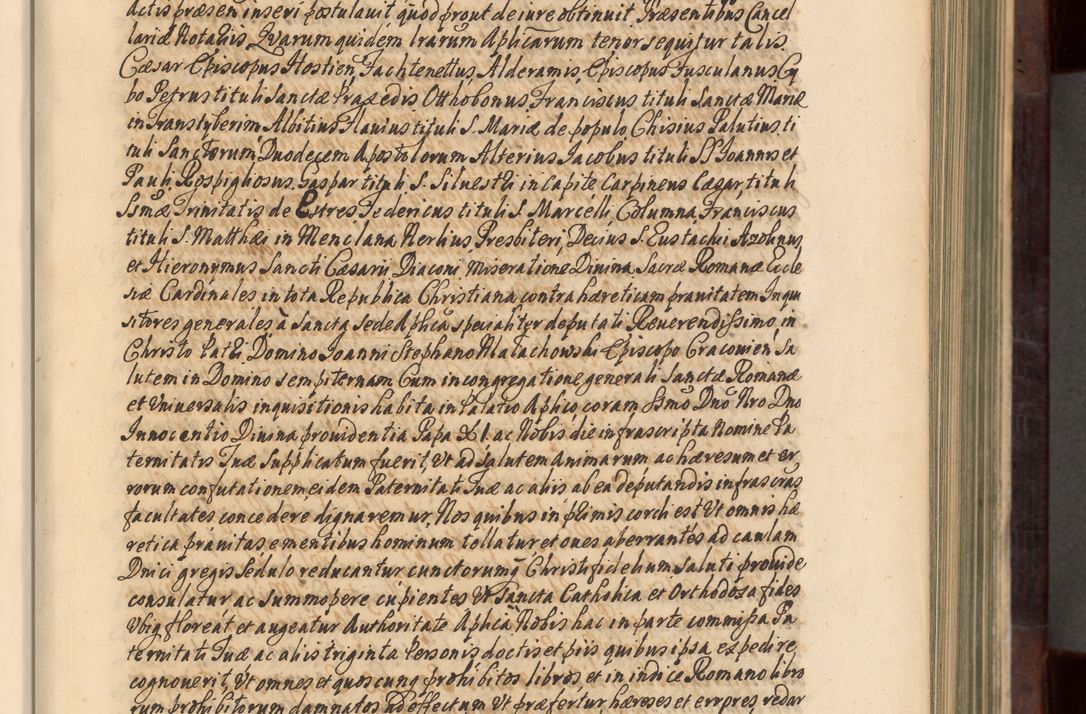 Actis præsen inseri postulauit quod prout de iure obtinuit Præsentibus Cancel
lariæ Notariis Quarum quidem lrarum Aplicarum tenor sequitur talis.
Cæsar Episcopus Hostien Fachtenettus, Alderamis, Episcopus Tusculanus Cy
bo Petrus tituli Sanctæ Praxedis Otthobonus, Franciscus tituli Sanctæ Mariæ
in Transtyberim Albitius Flauius tituli S. Mariæ de populo, Chisius Palutius ti
tuli Sanctorum Duodecem Apostolorum Alterius Jacobus tituli SS Joannis et
Pauli, Rospigliosus. Gaspar tituli S. Siluestri in Capite Carpineus Cæsar, tituli
Ssmæ Trinitatis de Estres Federicus tituli S. Marcelli, Columna, Franciscus
tituli S. Matthæi in Menclana Nerlius, Presbiteri, Decius S. Eustachii Azolinus
et Hieronymus Sancti Cæsarii Diaconi, Miseratione Diuina Sacræ Romanæ Eccle
siæ Cardinales in tota Republica Christiana contra hæreticam prauitatem Inqui
sitores generales à Sancta Sede Aplica specialiter deputati Reuerendissimo, in
Christo Patri Domino Joanni Stephano Malachowski Episcopo Cracouien Sa
lutem in Domino sempiternam Cum in congregatione generali Sanctæ Romanæ
et Vniuersalis inquisitionis habita in Palatio Aplico coram Ssmo Dno Nro Dno
Innocentio Diuina prouidentia Papa XI. ac Nobis die infrascripta Nomine Pa
ternitatis Tuæ Supplicatum fuerit, Vt ad salutem Animarum ac hæresum et er
rorum confutationem eidem Paternitati Tuæ ac aliis ab ea deputandis infrascras
facultates concedere dignaremur, Nos quibus in primis cordi est Vt omnis hæ
retica prauitas, e mentibus hominum tollatur et oues aberrantes ad caulam
Dnici gregis Sedulo reducantur cunctorumq Christifidelium Saluti prouide
consulatur ac Summopere cupientes Vt Sancta Catholica et Orthodoxa fides
Vbiq floreat et augeatur Authoritate Aplica Nobis hac in parte commissa Pa
ternitati Tuæ ac aliis triginta Personis doctis et piis quibus ipsa expedire
cognouerit, Vt omnes et quoscunq prohibitos libros et in indice Romano libro
rum prohibitorum damnatos ad effectum Vt præfertur hæreses et errores redar